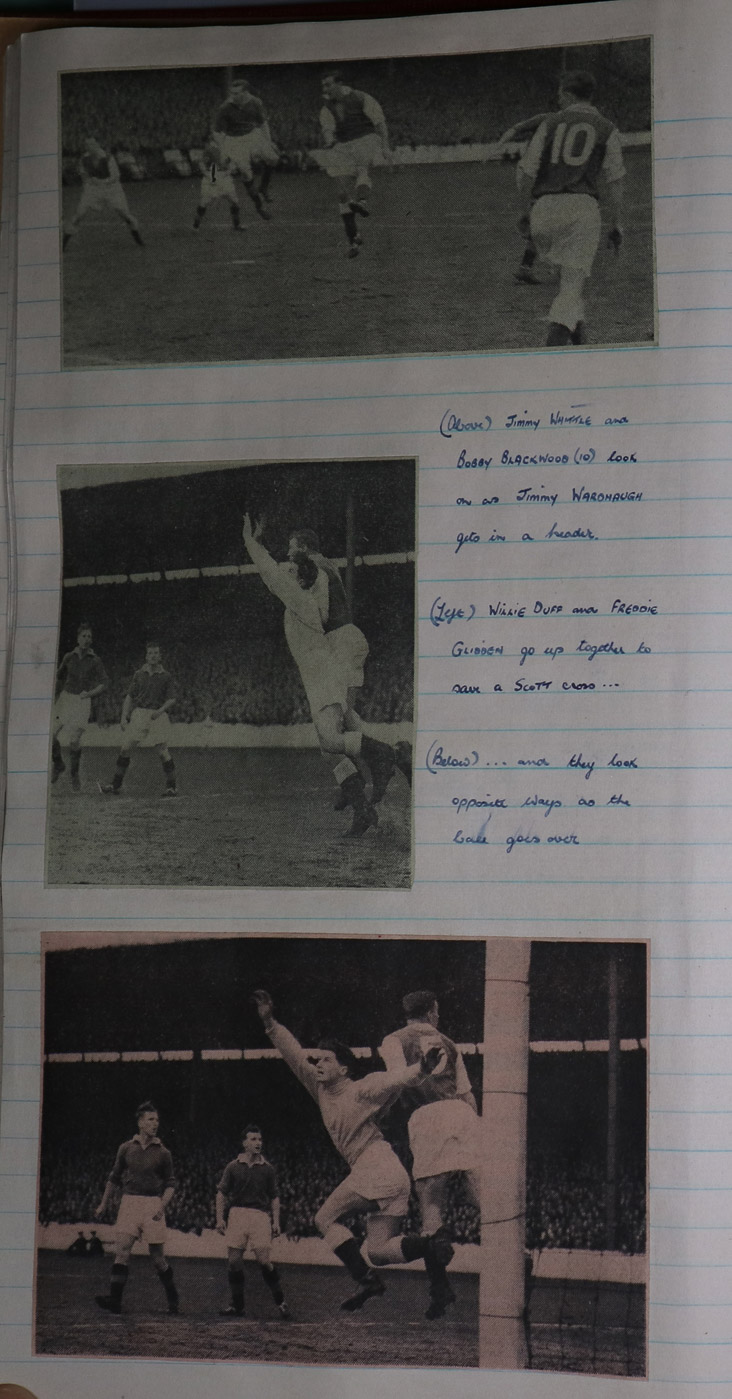 10
(Above) Jimmy WHITTLE and
BOBBY BLACKWOOD (10) look
on as Jimmy WARDHAUGH
gets in a header.
(Left) WILLIE DUFF and FREDDIE
GLIDDEN go up together to
save a SCOTT cross...
(Below) ... and they look
opposite ways as the
ball goes over